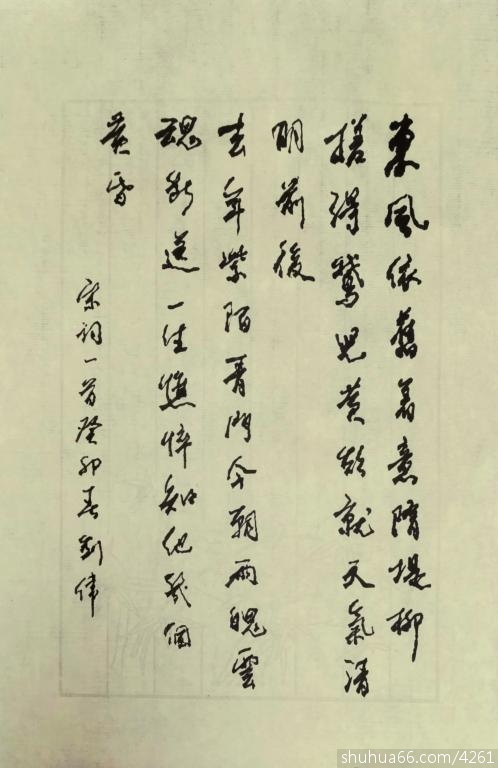 東風依舊着意隋堤柳
搓得鵞兒黄欲就天氣清
明前後
去年紫陌青門今朝雨魄雲
魂断送一生憔悴知他幾個
黄昏
宋詞一首癸卯春劉偉
shuhua66.com/4261